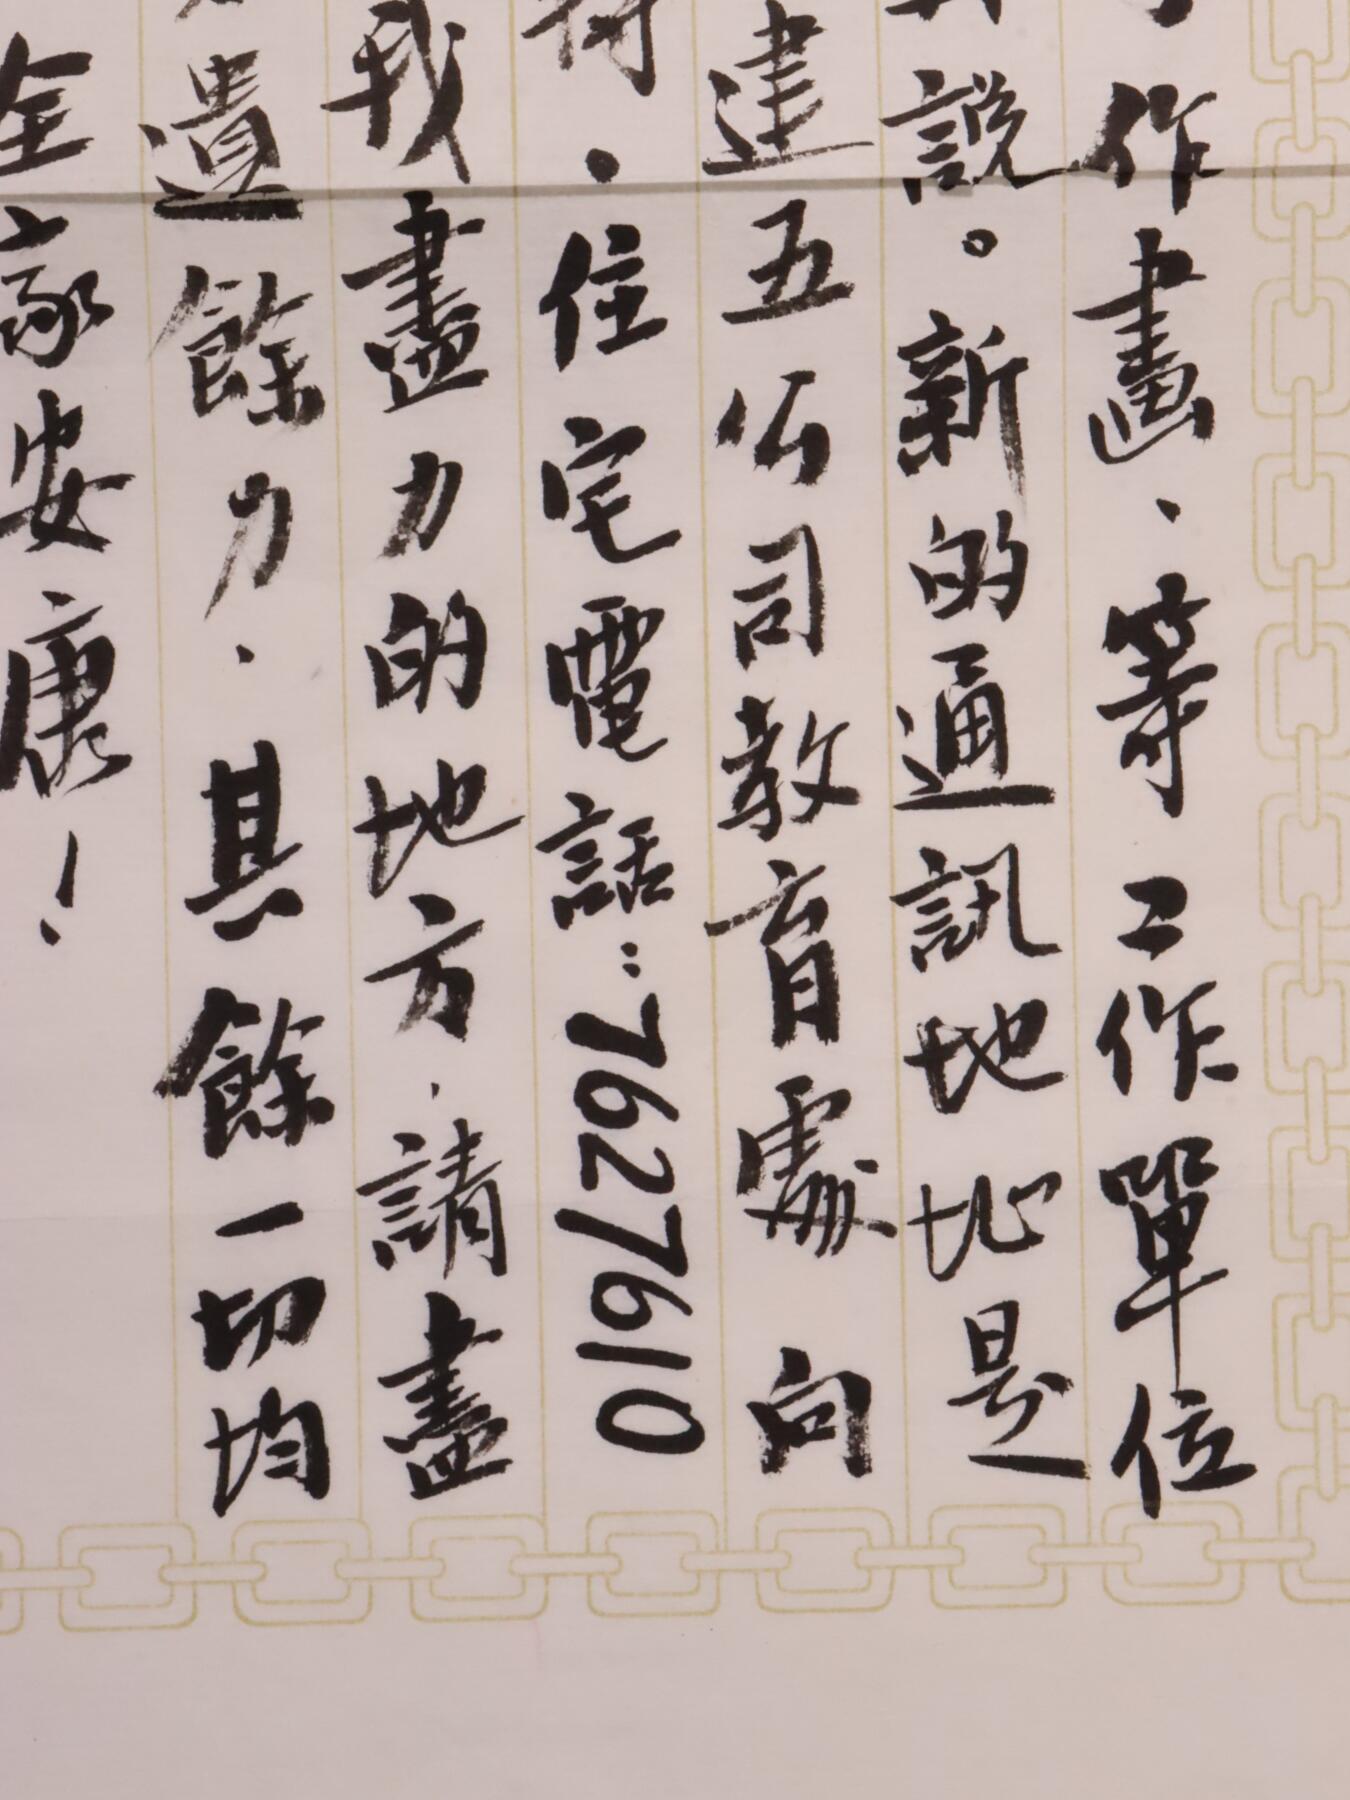 作畫、等工作單位
說。新的通訊地址是
建五公司教育處 向
·住宅電話:7627610
我盡力的地方,請盡
遺餘力.其餘一切均
全家安康!